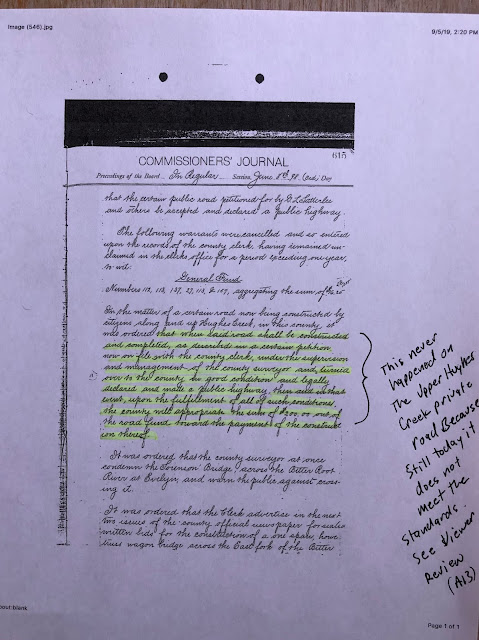 Image (546).jpg
9/5/19, 2:20 PM
615
COMMISSIONERS' JOURNAL
Proceedings of the Board In Regular Session, June 8th 98 (2nd) Day
that the certain public road petitioned for by
and others be accepted and declared a public highway.
The following warrants were cancelled and so entered
upon the records of the county clerk, having remained un-
claimed in the clerks office for a period exceeding one year,
to wit:
General Fund
Numbers 112, 113, 137, 27, 115, & 107, aggregating the sum of
In the matter of a certain road now being constructed by
citizens along and up Hughes Creek, in this county, it
was ordered that when said road shall be constructed
and completed, as described in a certain petition
now on file with the county clerk, under the supervision
and management of the county surveyor and turned
over to the county in good condition and legally
declared and made a public highway, then and in that
event, upon the fulfillment of all of such conditions,
the county will appropriate the sum of $200.00 out of
the road fund toward the payment of the construct-
ion thereof.
It was ordered that the county surveyor at once
condemn the Sorenson Bridge across the Bitter Root
River at Evelyn, and warn the public against cross-
ing it.
It was ordered that the Clerk advertise in the next
two issues of the county official newspaper for sealed
written bids for the construction of a one span, howe
truss wagon bridge across the East fork of the Bitter
This never
happened on
The Upper Hughes
Creek private
road Because
still today it
does not
meet the
standards.
See Viewer
Review
(A13)
about:blank
Page 1 of 1